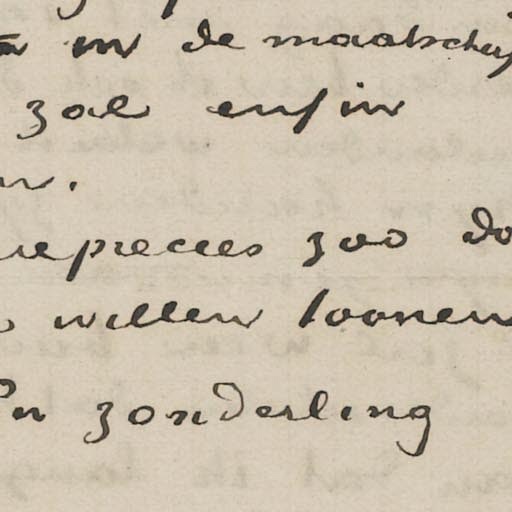 in de maatschap
zal enfin
precies zoo do
willen toonen
zonderling